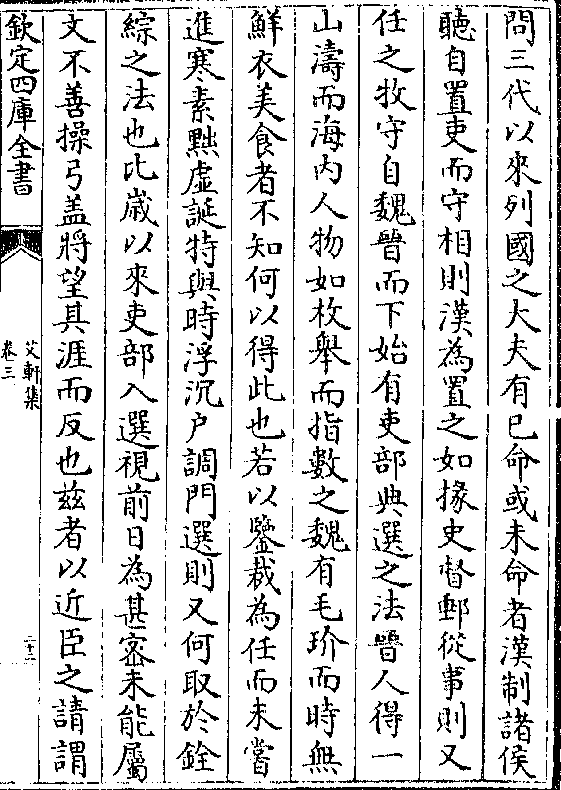 問三代以來列國之大夫有已命或未命者漢制諸侯
聽自置吏而守相則漢為置之如掾史督郵從事則又
任之牧守自魏晉而下始有吏部典選之法晉人得一
山濤而海内人物如枚舉而指數之魏有毛玠而時無
鮮衣美食者不知何以得此也若以鑒裁為任而未嘗
進寒素黜虛誕特與時浮沉户調門選則又何取於銓
綜之法也比歲以來吏部入選視前日為甚密未能屬
文不善操弓盖將望其涯而反也兹者以近臣之請謂
欽定四庫全書
艾軒集
卷三
二十二